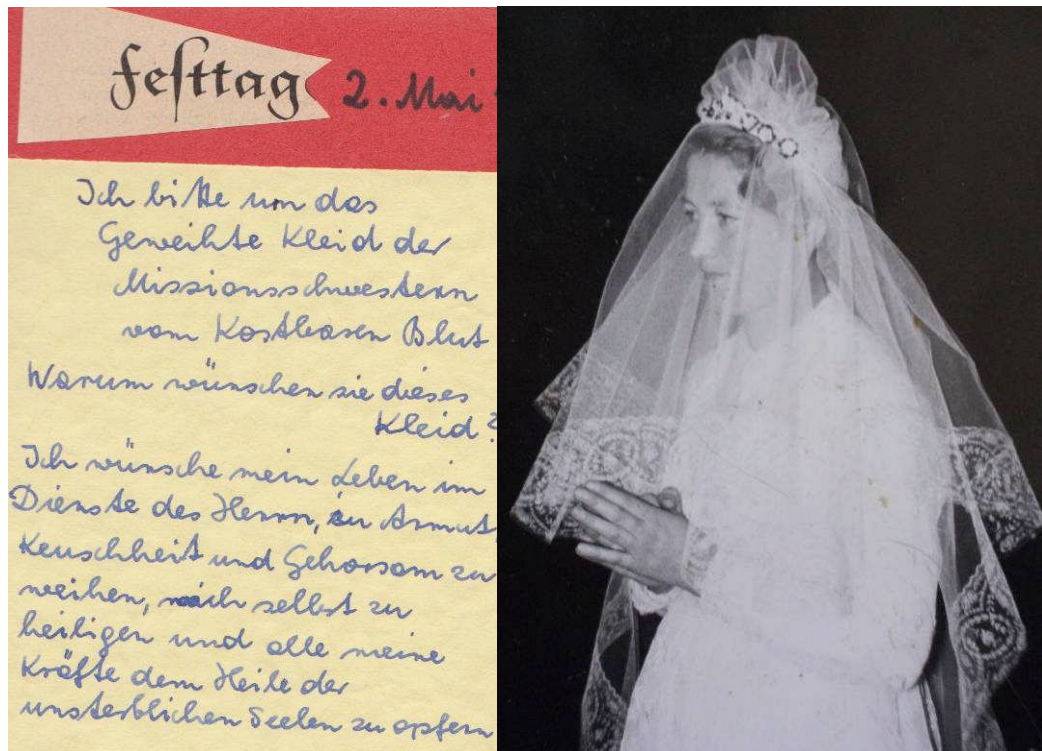 Festtag 2. Mai
Ich bitte um das
Geweihte Kleid der
Missionsschwestern
vom Kostbaren Blut
Warum wünschen sie dieses
Kleid?
Ich wünsche mein Leben im
Dienste des Herrn, in Armut,
Keuschheit und Gehorsam zu
weihen, mich selbst zu
heiligen und alle meine
Kräfte dem Heile der
unsterblichen Seelen zu opfern